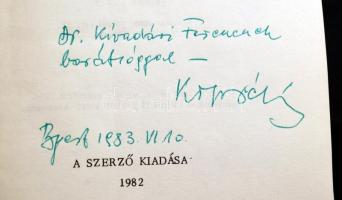 Dr. Kivadári Ferencnek
barátsággal —
Bpest 1983. VI. 10.
A SZERZŐ KIADÁSA
1982